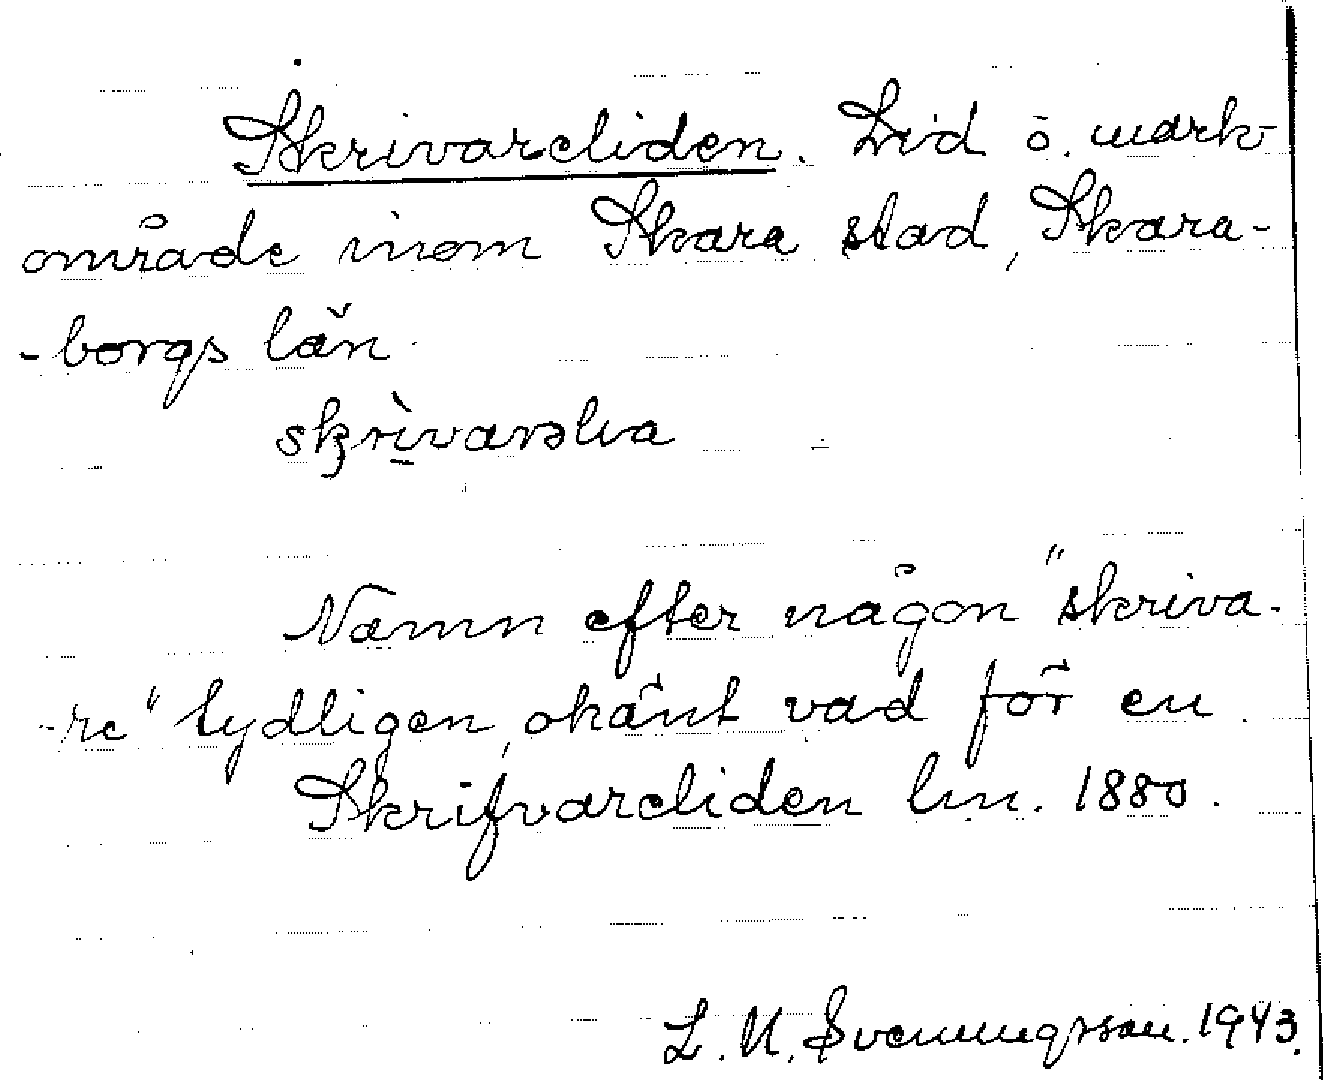 Skrivareliden. Lid o. mark
område inom Skara stad, Skara-
-borgs län
skrìvarəlia
Namn efter någon "skriva-
-re" tydligen, okänt vad för en
Skrifvareliden lm. 1880.
L. N. Svenungsson. 1943.